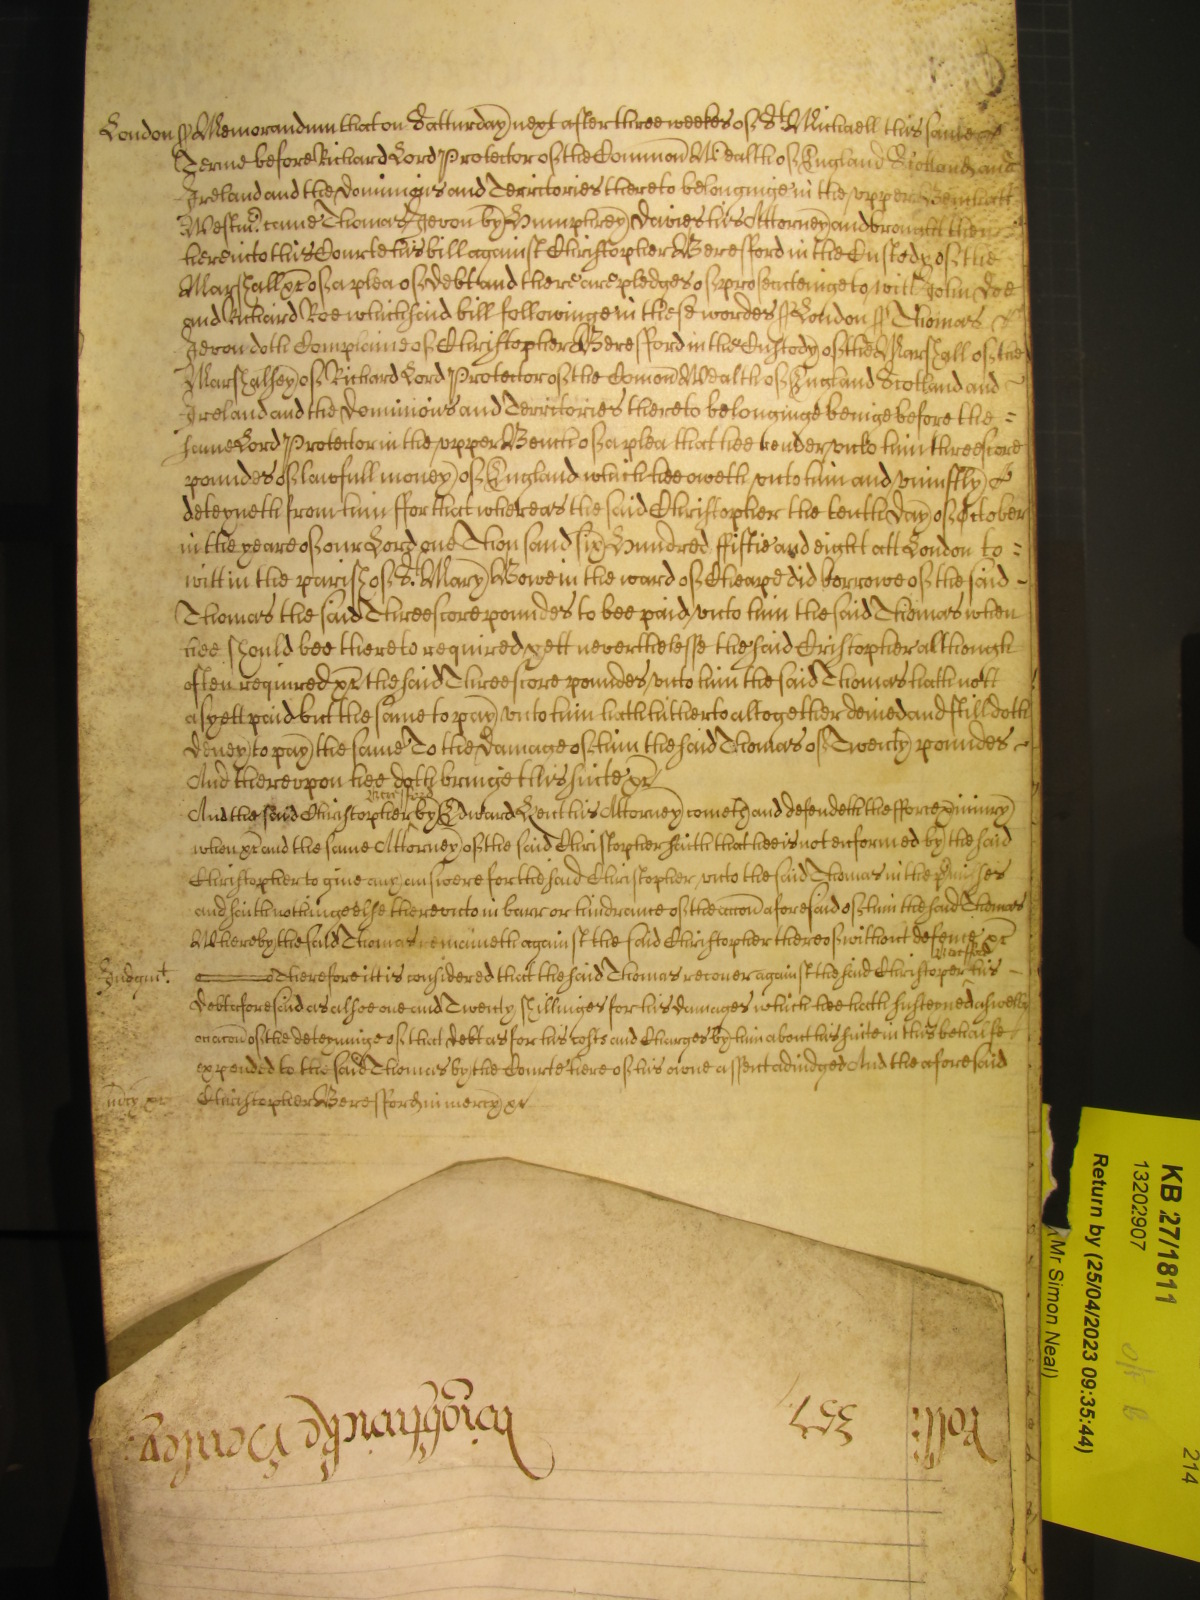 London ss Memorandum that on Satturday next after three weekes of St Michaell this same
Terme before Richard Lord Protector of the Common Wealth of England Scotland and
Ireland and the Dominions and Territories thereto belonginge in the vpper Bench att
Westmr. came Thomas Jevon by Humphrey Davies his Attorney and brought then
here into this Courte his bill against Christopher Beresfford in the Custody of the
Marshall xc of a plea of Debt and there are pledges of prosecuteinge to witt John Doe
and Richard Roe which said bill followinge in these wordes ss London ss Thomas
Jevon doth Complaine of Christopher Beresfford in the Custody of the Marshall of the
Marshalsey of Richard Lord Protector of the Comon Wealth of England Scotland and
Ireland and the Dominions and Territories thereto belonginge beinge before the
same Lord Protector in the vpper Bench of a plea that hee render vnto him threescore
poundes of lawfull money of England which hee oweth vnto him and vniustly
deteyneth from him ffor that whereas the said Christopher the tenth Day of October
in the yeare of our Lord one Thousand six Hundred ffiftie and eight att London to
witt in the parish of St. Mary Bowe in the ward of Cheape did borrowe of the said
Thomas the said Threescore poundes to bee paid vnto him the said Thomas when
hee should bee thereto required yett neverthelesse the said Cristopher although
often required xc the said Threescore poundes vnto him the said Thomas hath nott
as yett paid but the same to pay vnto him hath hitherto altogether denied and still doth
deney to pay the same To the Damage of him the said Thomas of Twenty poundes
And therevpon hee doth bringe this suite xc
Beresfford
And the said Christopher by Edward Kent his Attorney cometh and defendeth the fforce iniury
when xc and the same Attorney of the said Christopher saith that hee is not enformed by the said
Christopher to give any answere for the said Christopher vnto the said Thomas in the p'misses
and saith nothinge else therevnto in barr or hindrance of the accon aforesaid of him the said Thomas
Whereby the said Thomas remaineth against the said Christopher thereof without defence xc
Beresfford
Iudgmt. Therefore itt is considered that the said Thomas recouer against the said Christoper his
Debt aforesaid as alsoe one and Twenty shillinges for his damages which hee hath susteyned aswell
occacon of the deteyninge of that debt as for his costs and Charges by him about his suite in this behalfe
expended to the said Thomas by the Courte here of his owne assent adiudged And the aforesaid
mcy xc Christopher Beresfford in mercy xc
Roll: 357 Wightwicke Henley
KB 27/1811
13202907
Return by (25/04/2023 09:35:44)
Mr Simon Neal)
214